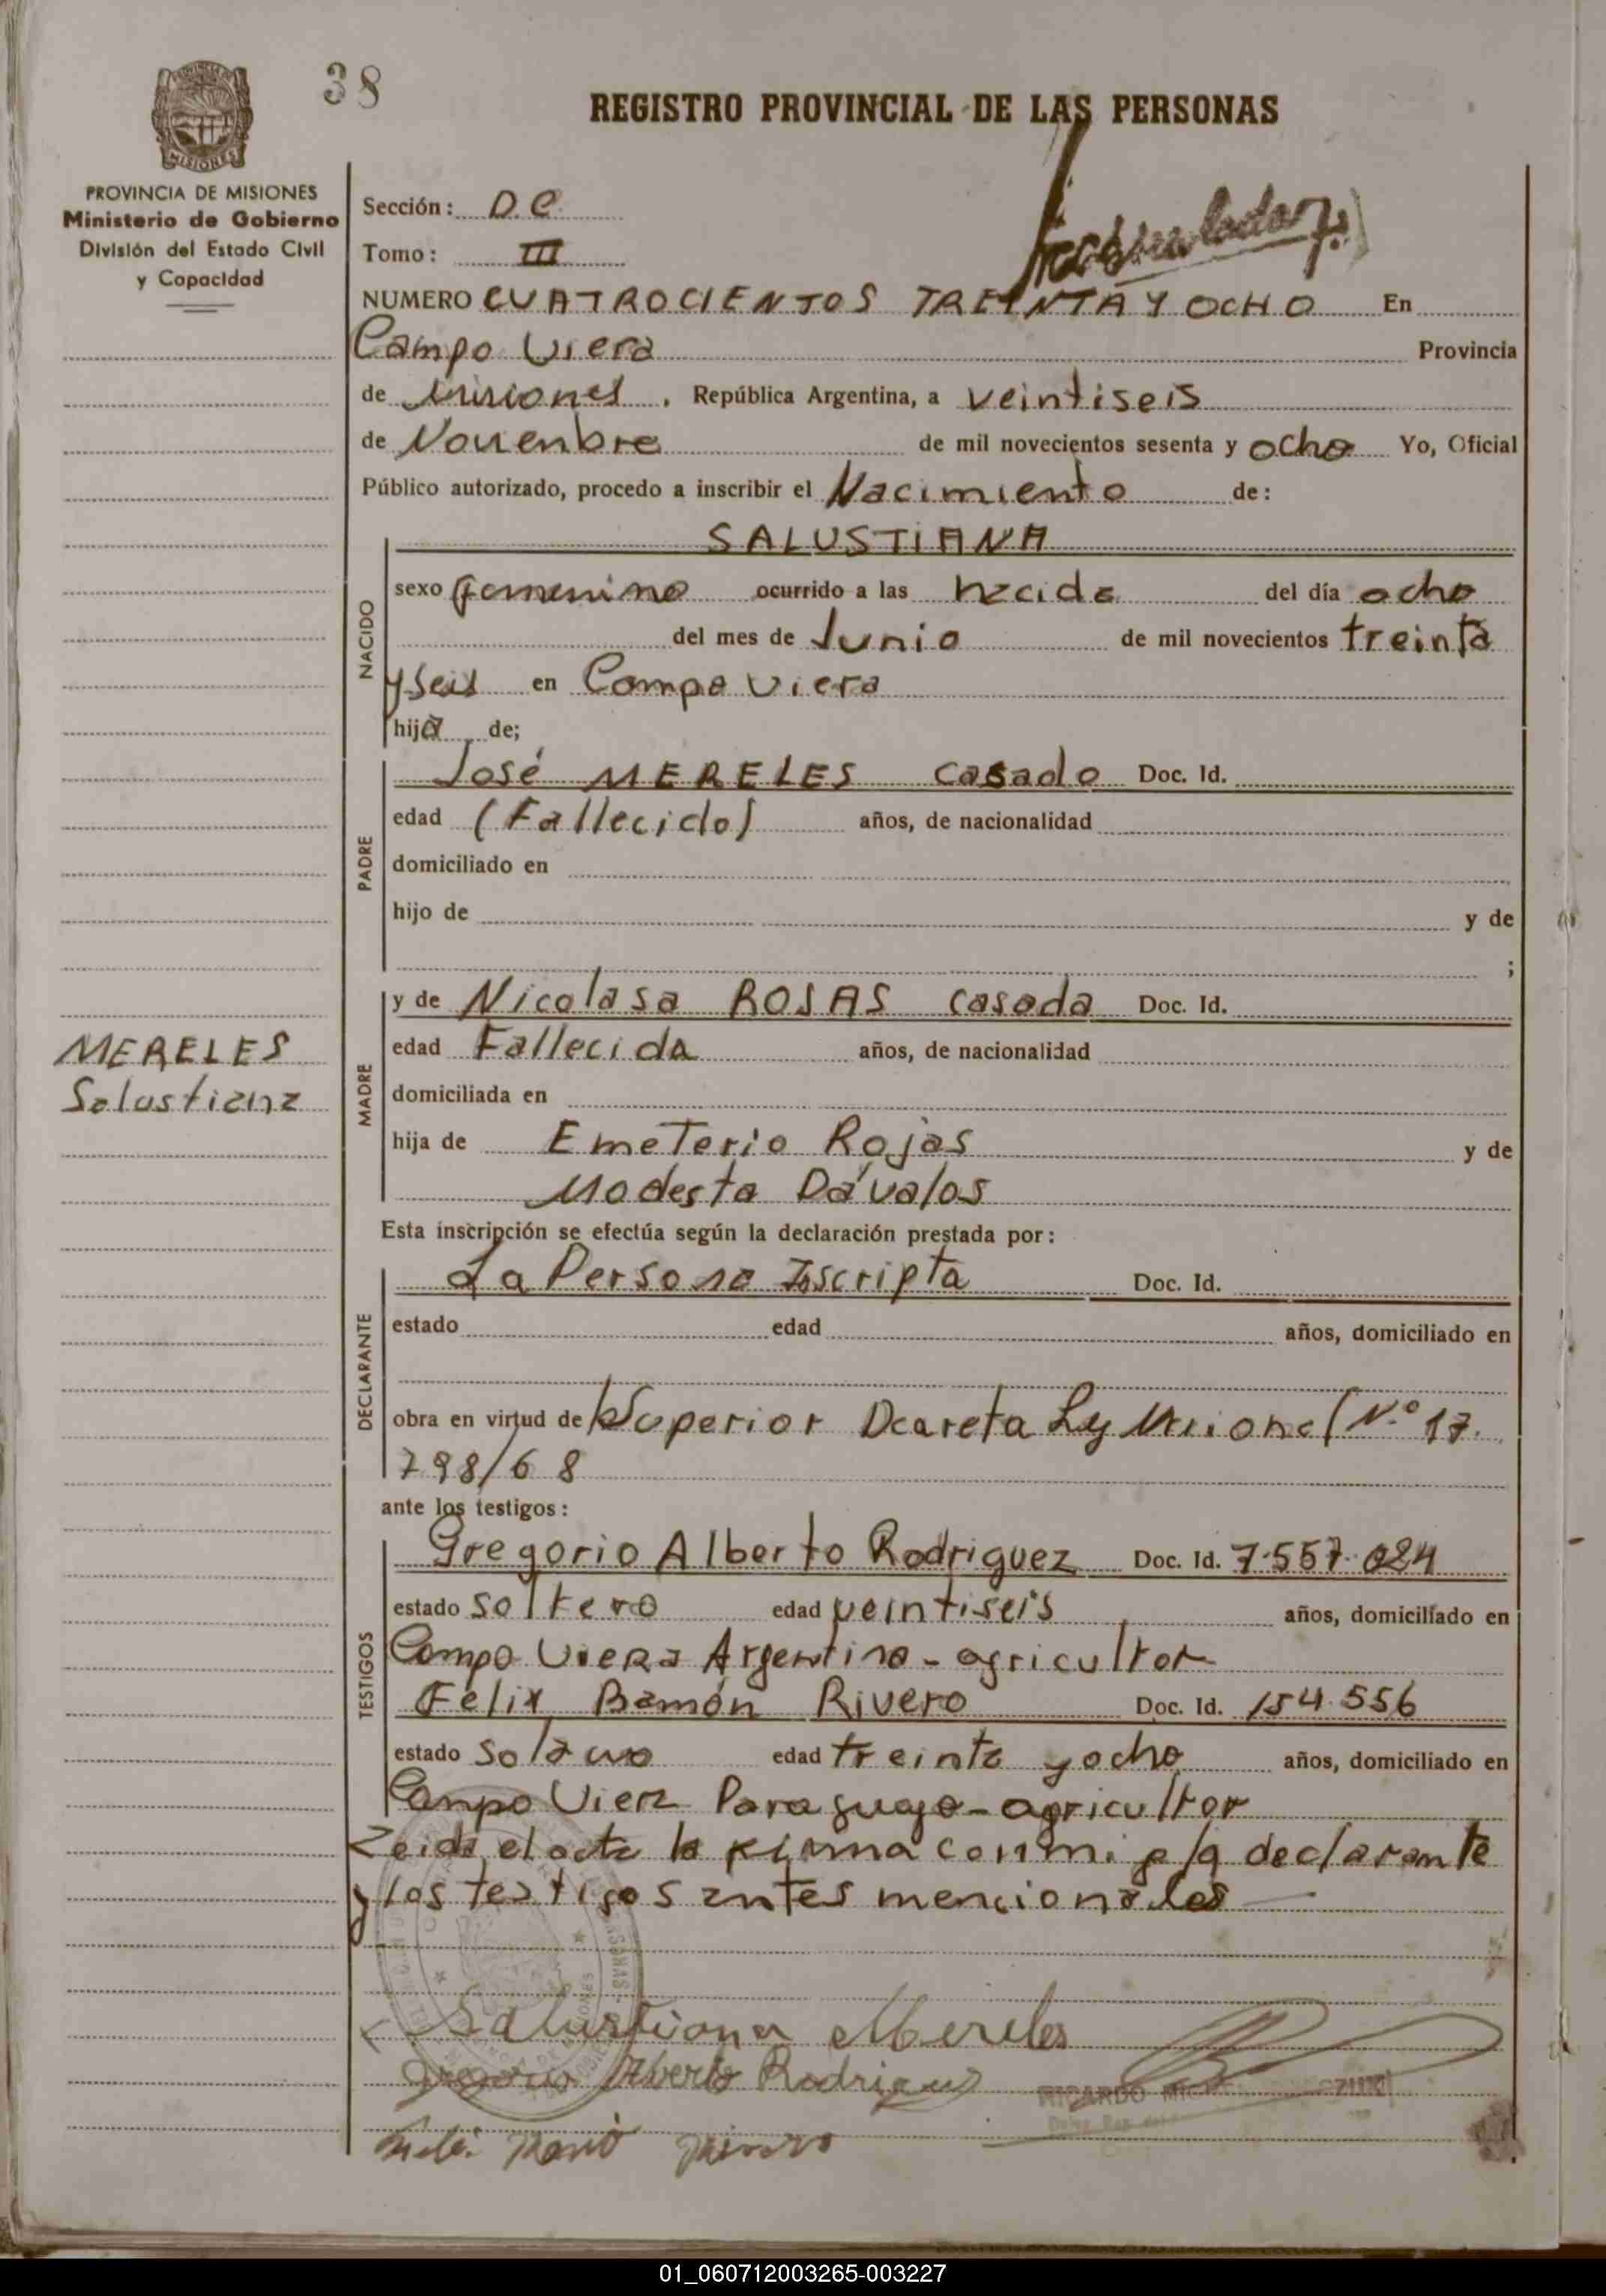 38
REGISTRO PROVINCIAL DE LAS PERSONAS
PROVINCIA DE MISIONES
Ministerio de Gobierno
División del Estado Civil
y Capacidad
Sección: D.C.
Tomo: III
NUMERO CUATROCIENTOS TREINTA Y OCHO En
Campo Viera Provincia
de Misiones, República Argentina, a veintiseis
de Novienbre de mil novecientos sesenta y ocho Yo, Oficial
Público autorizado, procedo a inscribir el Nacimiento de:
SALUSTIANA
NACIDO
sexo femenino ocurrido a las nacida del día ocho
del mes de Junio de mil novecientos treinta
y seis en Campo Viera
hija de;
PADRE
José MERELES casado Doc. Id.
edad (Fallecido) años, de nacionalidad
domiciliado en
hijo de y de
;
MADRE
y de Nicolasa ROJAS casada Doc. Id.
edad Fallecida años, de nacionalidad
domiciliada en
hija de Emeterio Rojas y de
Modesta Dávalos
MERELES
Salustiana
Esta inscripción se efectúa según la declaración prestada por:
DECLARANTE
La Persona Inscripta Doc. Id.
estado edad años, domiciliado en
obra en virtud de Superior Ley N.° 17.
798/68
ante los testigos:
TESTIGOS
Gregorio Alberto Rodriguez Doc. Id. 7.557.024
estado soltero edad veintiseis años, domiciliado en
Campo Viera Argentino - agricultor
Félix Ramón Rivero Doc. Id. 154.556
estado edad treinta y ocho años, domiciliado en
Campo Viera Paraguayo - agricultor
Leida el acta la firma conmi declarante
y los testigos antes mencionados
Salustiana Mereles
Gregorio Alberto Rodriguez
RICARDO
01_060712003265-003227